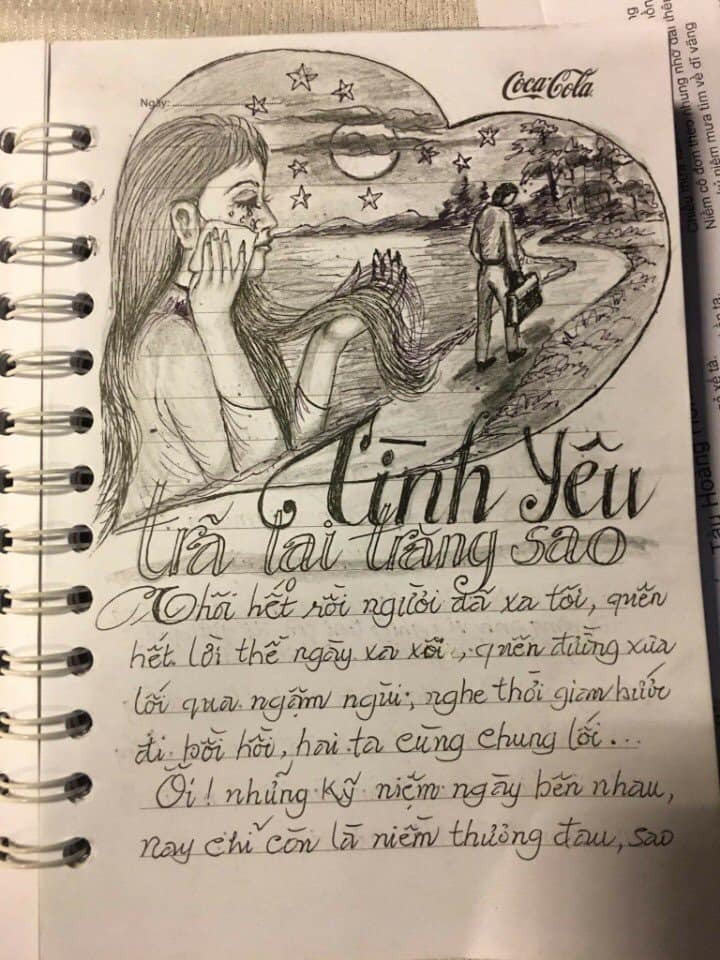 Ngày:
Coca-Cola
Tình Yêu
trả lại trăng sao
Thôi hết rồi người đã xa tôi, quên
hết lời thề ngày xa xôi, quên đường xưa
lối qua ngậm ngùi, nghe thời gian bước
đi bồi hồi, hai ta cùng chung lối...
Ôi! những kỹ niệm ngày bên nhau,
nay chỉ còn là niềm thương đau, sao
niềm mưa tìm về dĩ vãng
Niềm cô đơn